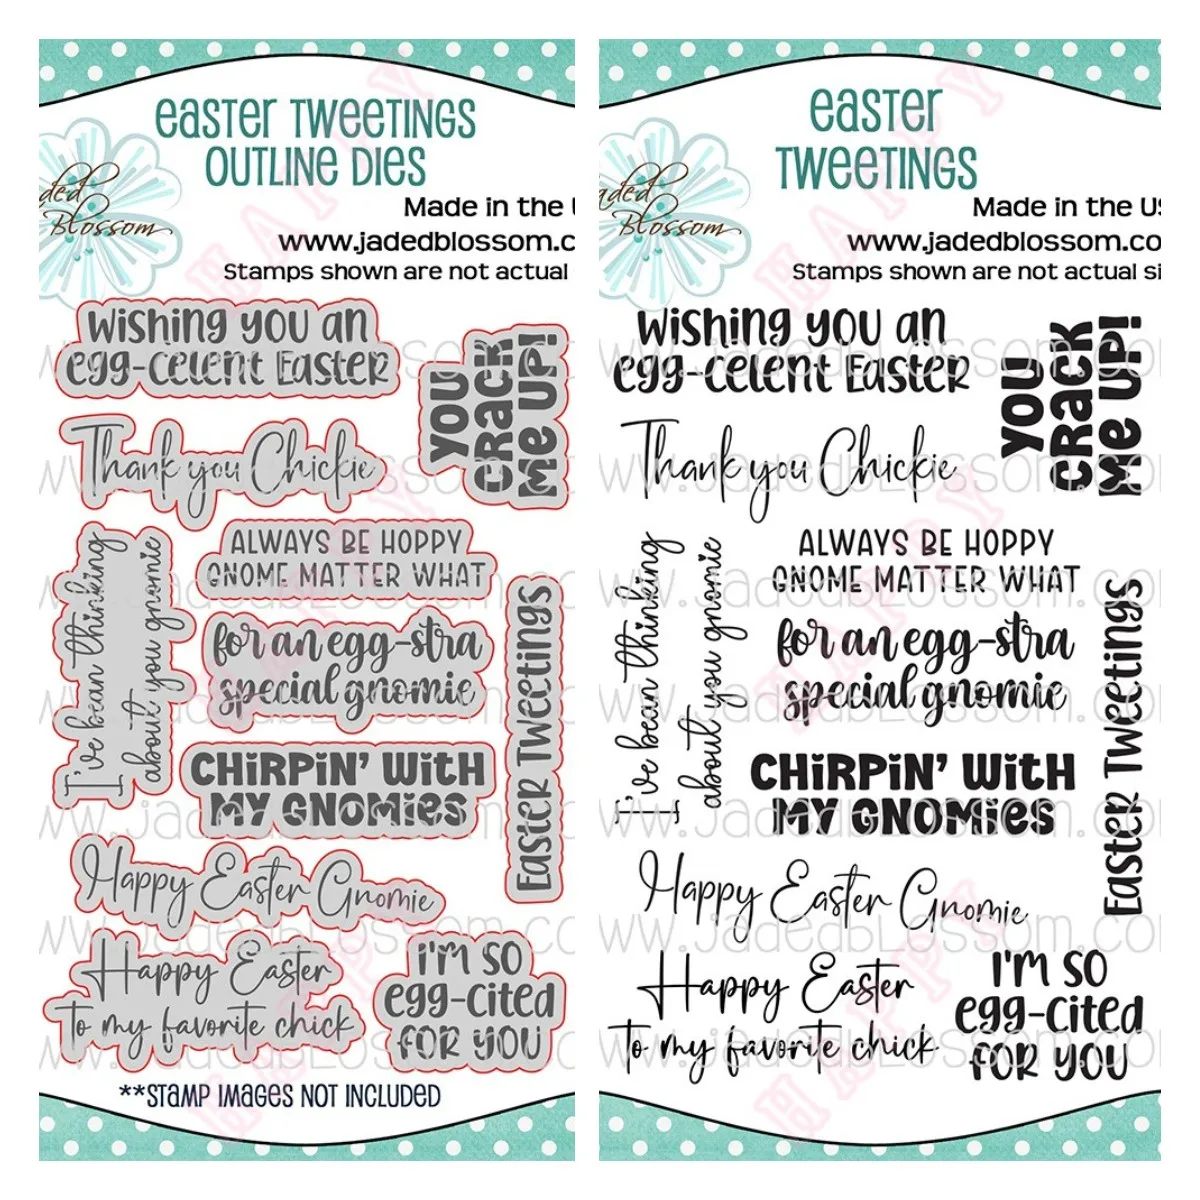 EASTER TWEETINGS
OUTLINE DIES
Jaded
Blossom
Made in the
www.jadedblossom.c
Stamps shown are not actual
wishing you an
egg-celent Easter
YOU
CRACK
ME UP!
Thank you Chickie
I've bean thinking
about you gnomie
ALWAYS BE HOPPY
GNOME MATTER WHAT
for an egg-stra
special gnomie
Easter Tweetings
CHIRPIN' WITH
MY GNOMIES
Happy Easter Gnomie
Happy Easter
to my favorite chick
I'M SO
egg-cited
FOR YOU
**STAMP IMAGES NOT INCLUDED
EASTER
TWEETINGS
Jaded
Blossom
Made in the US
www.jadedblossom.co
Stamps shown are not actual si
wishing you an
egg-celent Easter
YOU
CRACK
ME UP!
Thank you Chickie
I've bean thinking
about you gnomie
ALWAYS BE HOPPY
GNOME MATTER WHAT
for an egg-stra
special gnomie
Easter Tweetings
CHIRPIN' WITH
MY GNOMIES
Happy Easter Gnomie
Happy Easter
to my favorite chick
I'M SO
egg-cited
FOR YOU
www.JadedBlossom.com
HAPPY